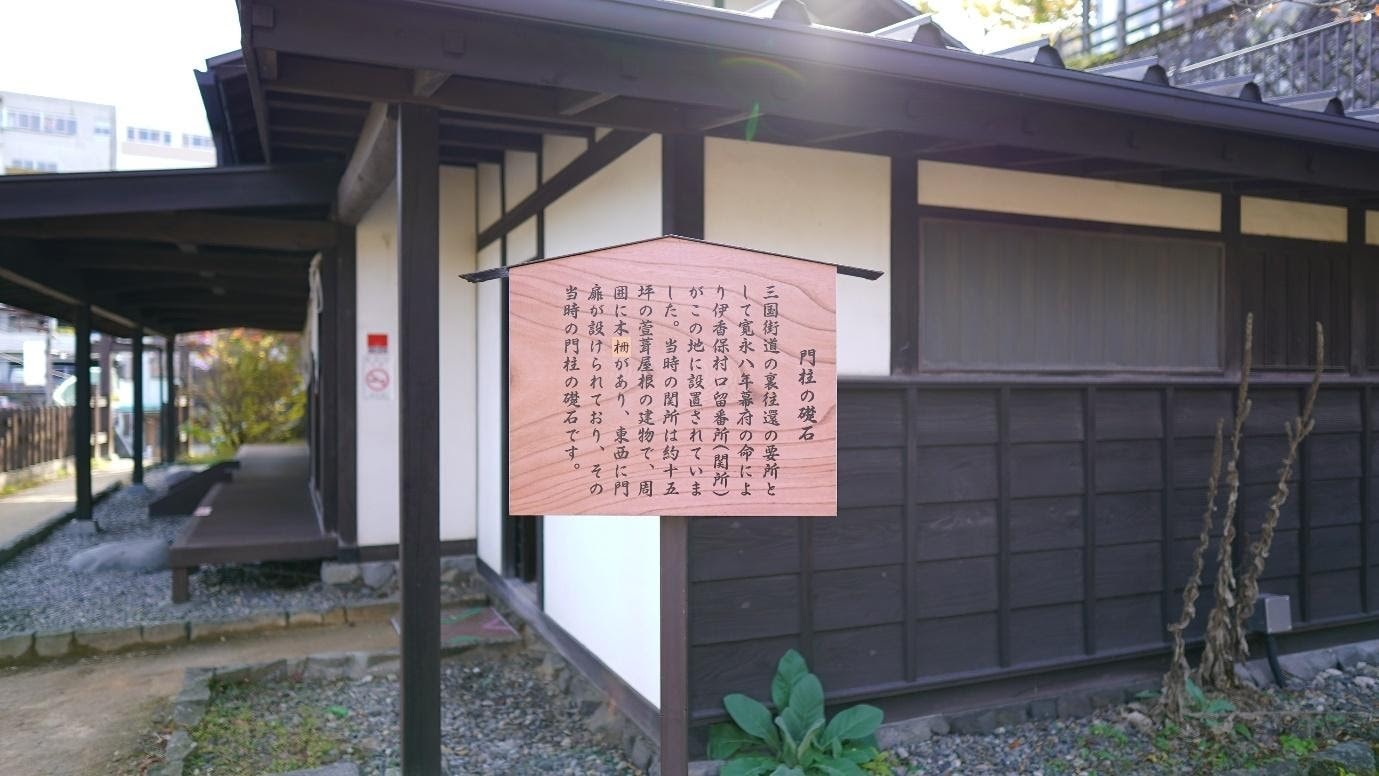 門柱の礎石
三国街道の裏往還の要所と
して寛永八年幕府の命によ
り伊香保村口留番所(関所)
がこの地に設置されていま
した。当時の関所は約十五
坪の萱葺屋根の建物で、周
囲に木柵があり、東西に門
扉が設けられており、その
当時の門柱の礎石です。